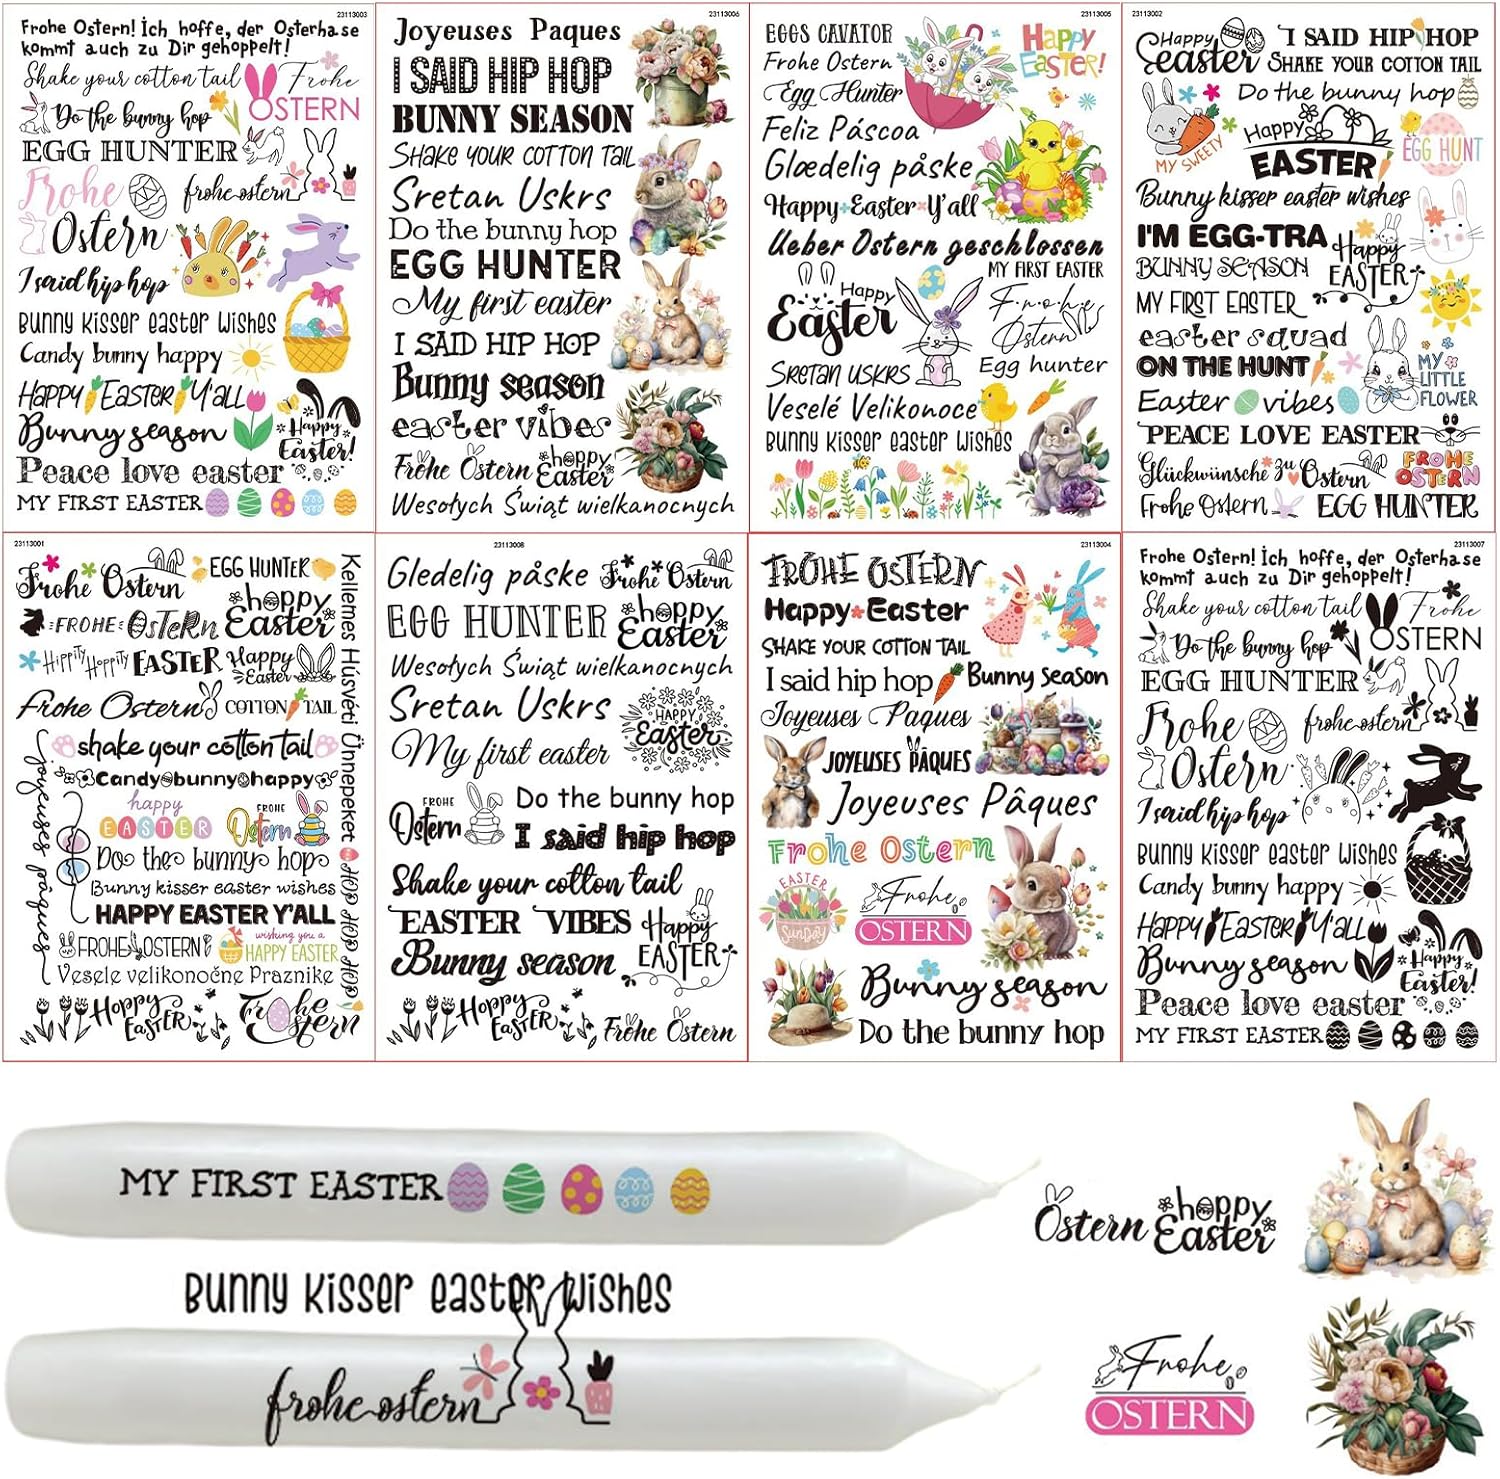 23113003
Frohe Ostern! Ich hoffe, der Osterhase
kommt auch zu Dir gehoppelt!
Shake your cotton tail
Frohe
OSTERN
Do the bunny hop
EGG HUNTER
Frohe
frohe ostern
Ostern
I said hip hop
Bunny kisser easter wishes
Candy bunny happy
HAPPY EASTER Y'ALL
Bunny season
Happy
Easter!
Peace love easter
MY FIRST EASTER
23113006
Joyeuses Paques
I SAID HIP HOP
BUNNY SEASON
SHAKE YOUR COTTON TAIL
Sretan Uskrs
Do the bunny hop
EGG HUNTER
My first easter
I SAID HIP HOP
Bunny season
easter vibes
Frohe Ostern
hoppy
Easter
Wesołych Świąt wielkanocnych
23113005
EGGS CAVATOR
Happy
EASTER!
Frohe Ostern
Egg Hunter
Feliz Páscoa
Glædelig påske
Happy Easter Y'all
Ueber Ostern geschlossen
MY FIRST EASTER
Happy
Easter
Frohe
Ostern
Egg hunter
SRETAN USKRS
Veselé Velikonoce
Bunny kisser easter wishes
23113002
Happy
easter
I SAID HIP HOP
SHAKE YOUR COTTON TAIL
Do the bunny hop
MY SWEETY
Happy
EASTER
EGG HUNT
Bunny kisser easter wishes
I'M EGG-TRA
BUNNY SEASON
Happy
EASTER
MY FIRST EASTER
easter squad
ON THE HUNT
MY
LITTLE
FLOWER
Easter vibes
PEACE LOVE EASTER
Glückwünsche zu Ostern
FROHE
OSTERN
Frohe Ostern
EGG HUNTER
23113001
Frohe Ostern
EGG HUNTER
FROHE OSTERN
hoppy
Easter
HIPPITY HOPPITY EASTER
Happy
Easter
Frohe Ostern
COTTON TAIL
shake your cotton tail
Candy bunny happy
happy
EASTER
FROHE
Ostern
Do the bunny hop
Bunny kisser easter wishes
HAPPY EASTER Y'ALL
FROHE OSTERN
wishing you a
HAPPY EASTER
Vesele velikonočne Praznike
Hoppy
EASTER
Frohe
Ostern
joyeuses pâques
Kellemes Húsvéti Ünnepeket
HOP HOP HOP
23113008
Gledelig påske
Frohe Ostern
EGG HUNTER
hoppy
Easter
Wesołych Świąt wielkanocnych
Sretan Uskrs
HAPPY
Easter
My first easter
FROHE
Ostern
Do the bunny hop
I said hip hop
Shake your cotton tail
EASTER VIBES
Happy
EASTER
Bunny season
Hoppy
EASTER
Frohe Ostern
23113004
FROHE OSTERN
Happy Easter
SHAKE YOUR COTTON TAIL
I said hip hop
Bunny season
Joyeuses Paques
JOYEUSES PÂQUES
Joyeuses Pâques
Frohe Ostern
EASTER
SUNDAY
Frohe
OSTERN
Bunny season
Do the bunny hop
23113007
Frohe Ostern! Ich hoffe, der Osterhase
kommt auch zu Dir gehoppelt!
Shake your cotton tail
Frohe
OSTERN
Do the bunny hop
EGG HUNTER
Frohe
frohe ostern
Ostern
I said hip hop
Bunny kisser easter wishes
Candy bunny happy
HAPPY EASTER Y'ALL
Bunny season
Happy
Easter!
Peace love easter
MY FIRST EASTER
MY FIRST EASTER
Bunny kisser easter wishes
frohe ostern
Ostern
hoppy
Easter
Frohe
OSTERN